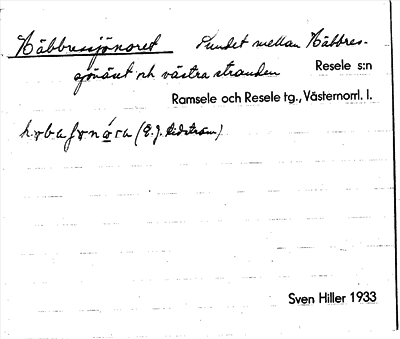 Häbbressjönoret Sundet mellan Häbbres-
sjönäset och västra stranden Resele s:n
Ramsele och Resele tg., Västernorrl. l.
(E.J. Lidström)
Sven Hiller 1933